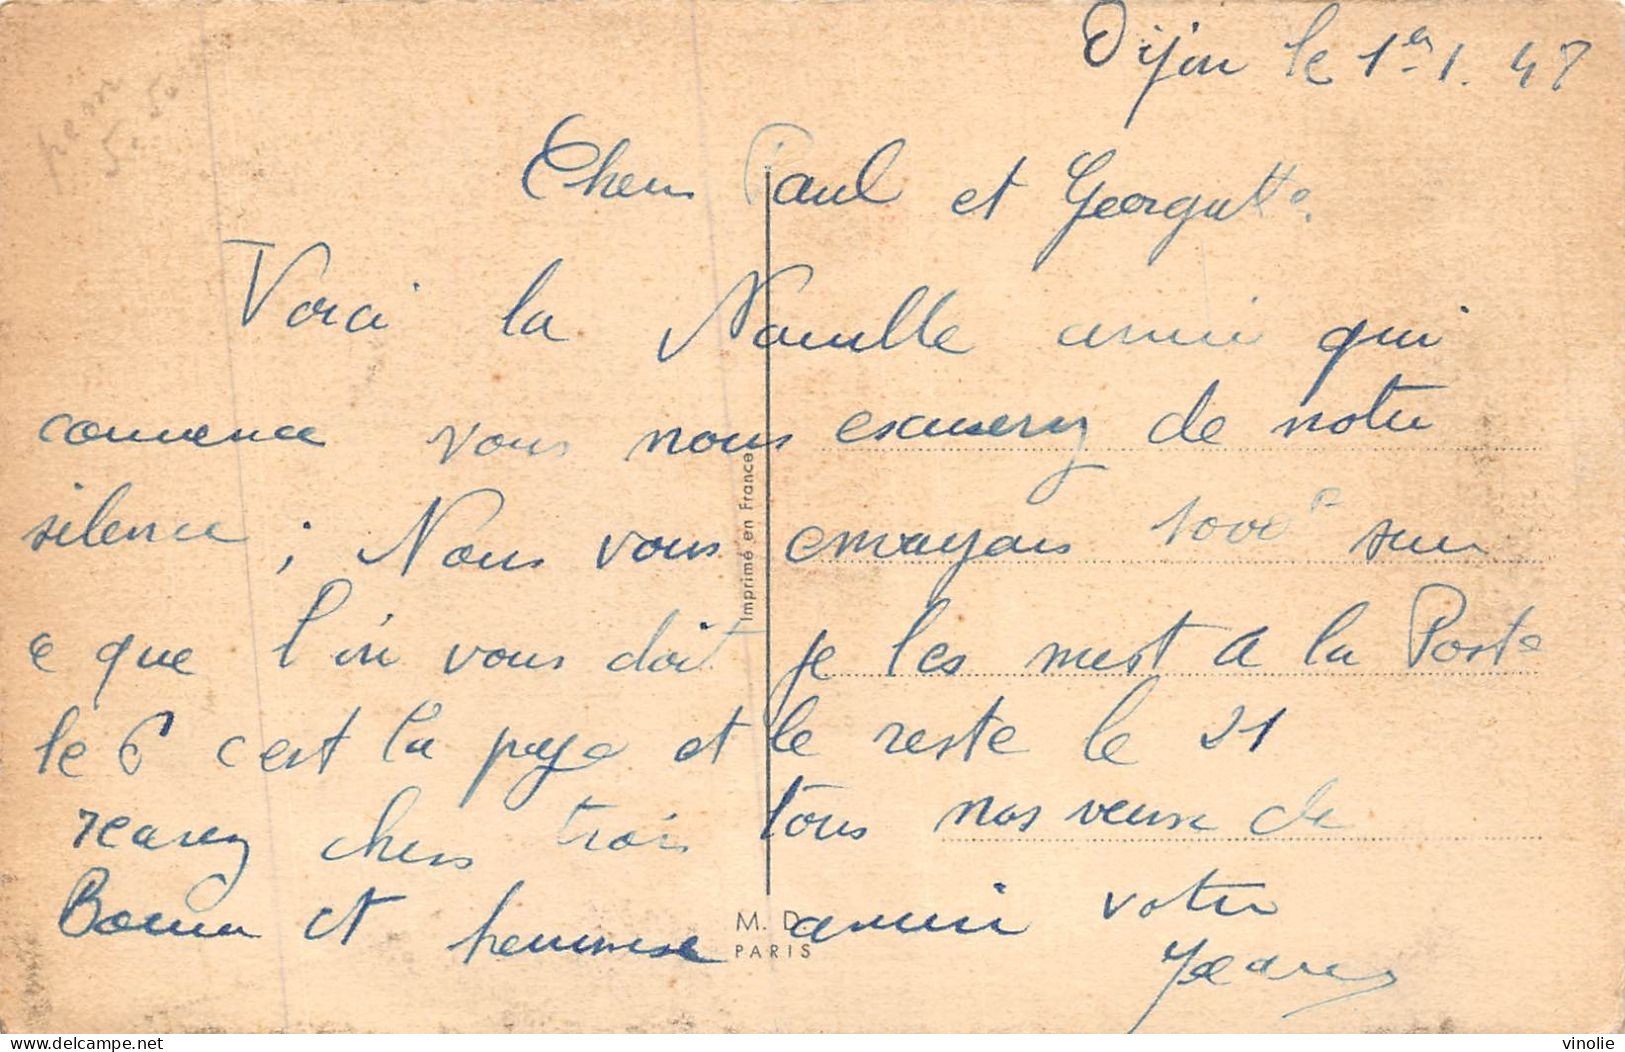 Dijon le 1er 1. 47
Chers Paul et Georgette.
Voici la Nouvelle année qui
commence vous nous excuserez de notre
silence ; Nous vous envoyons 1000F sur
ce que l'on vous doit je les mest a la Poste
le 6 c'est la paye et le reste le 21
recevez chers trois tous nos veux de
Bonne et heureuse année votre
Imprimé en France
M. D.
PARIS
vinolie